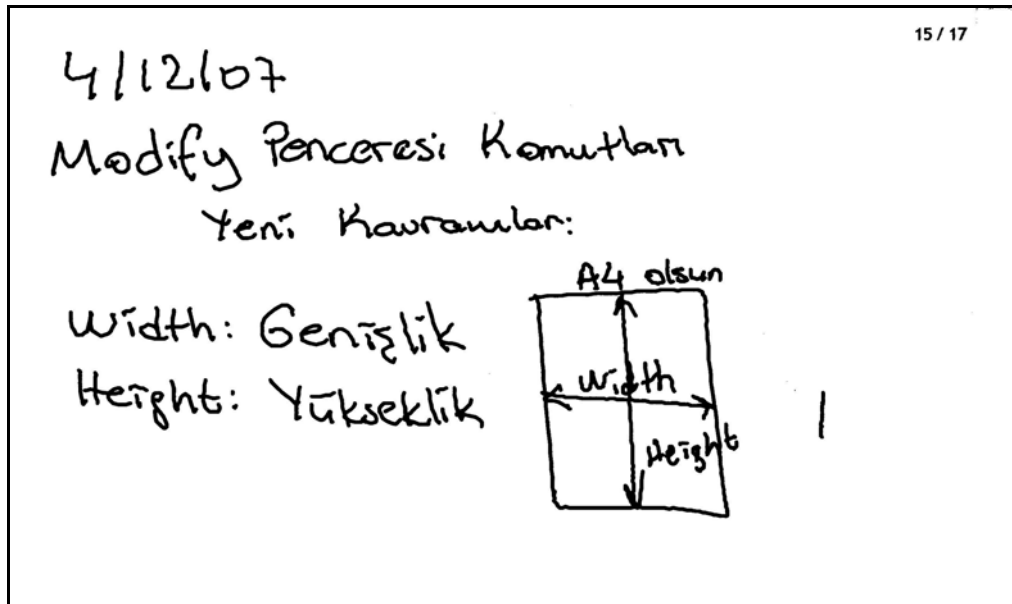 15 / 17
4/12/07
Modify Penceresi Komutları
Yeni Kavramlar:
A4 olsun
Width: Genişlik
Height: Yükseklik
Width
Height